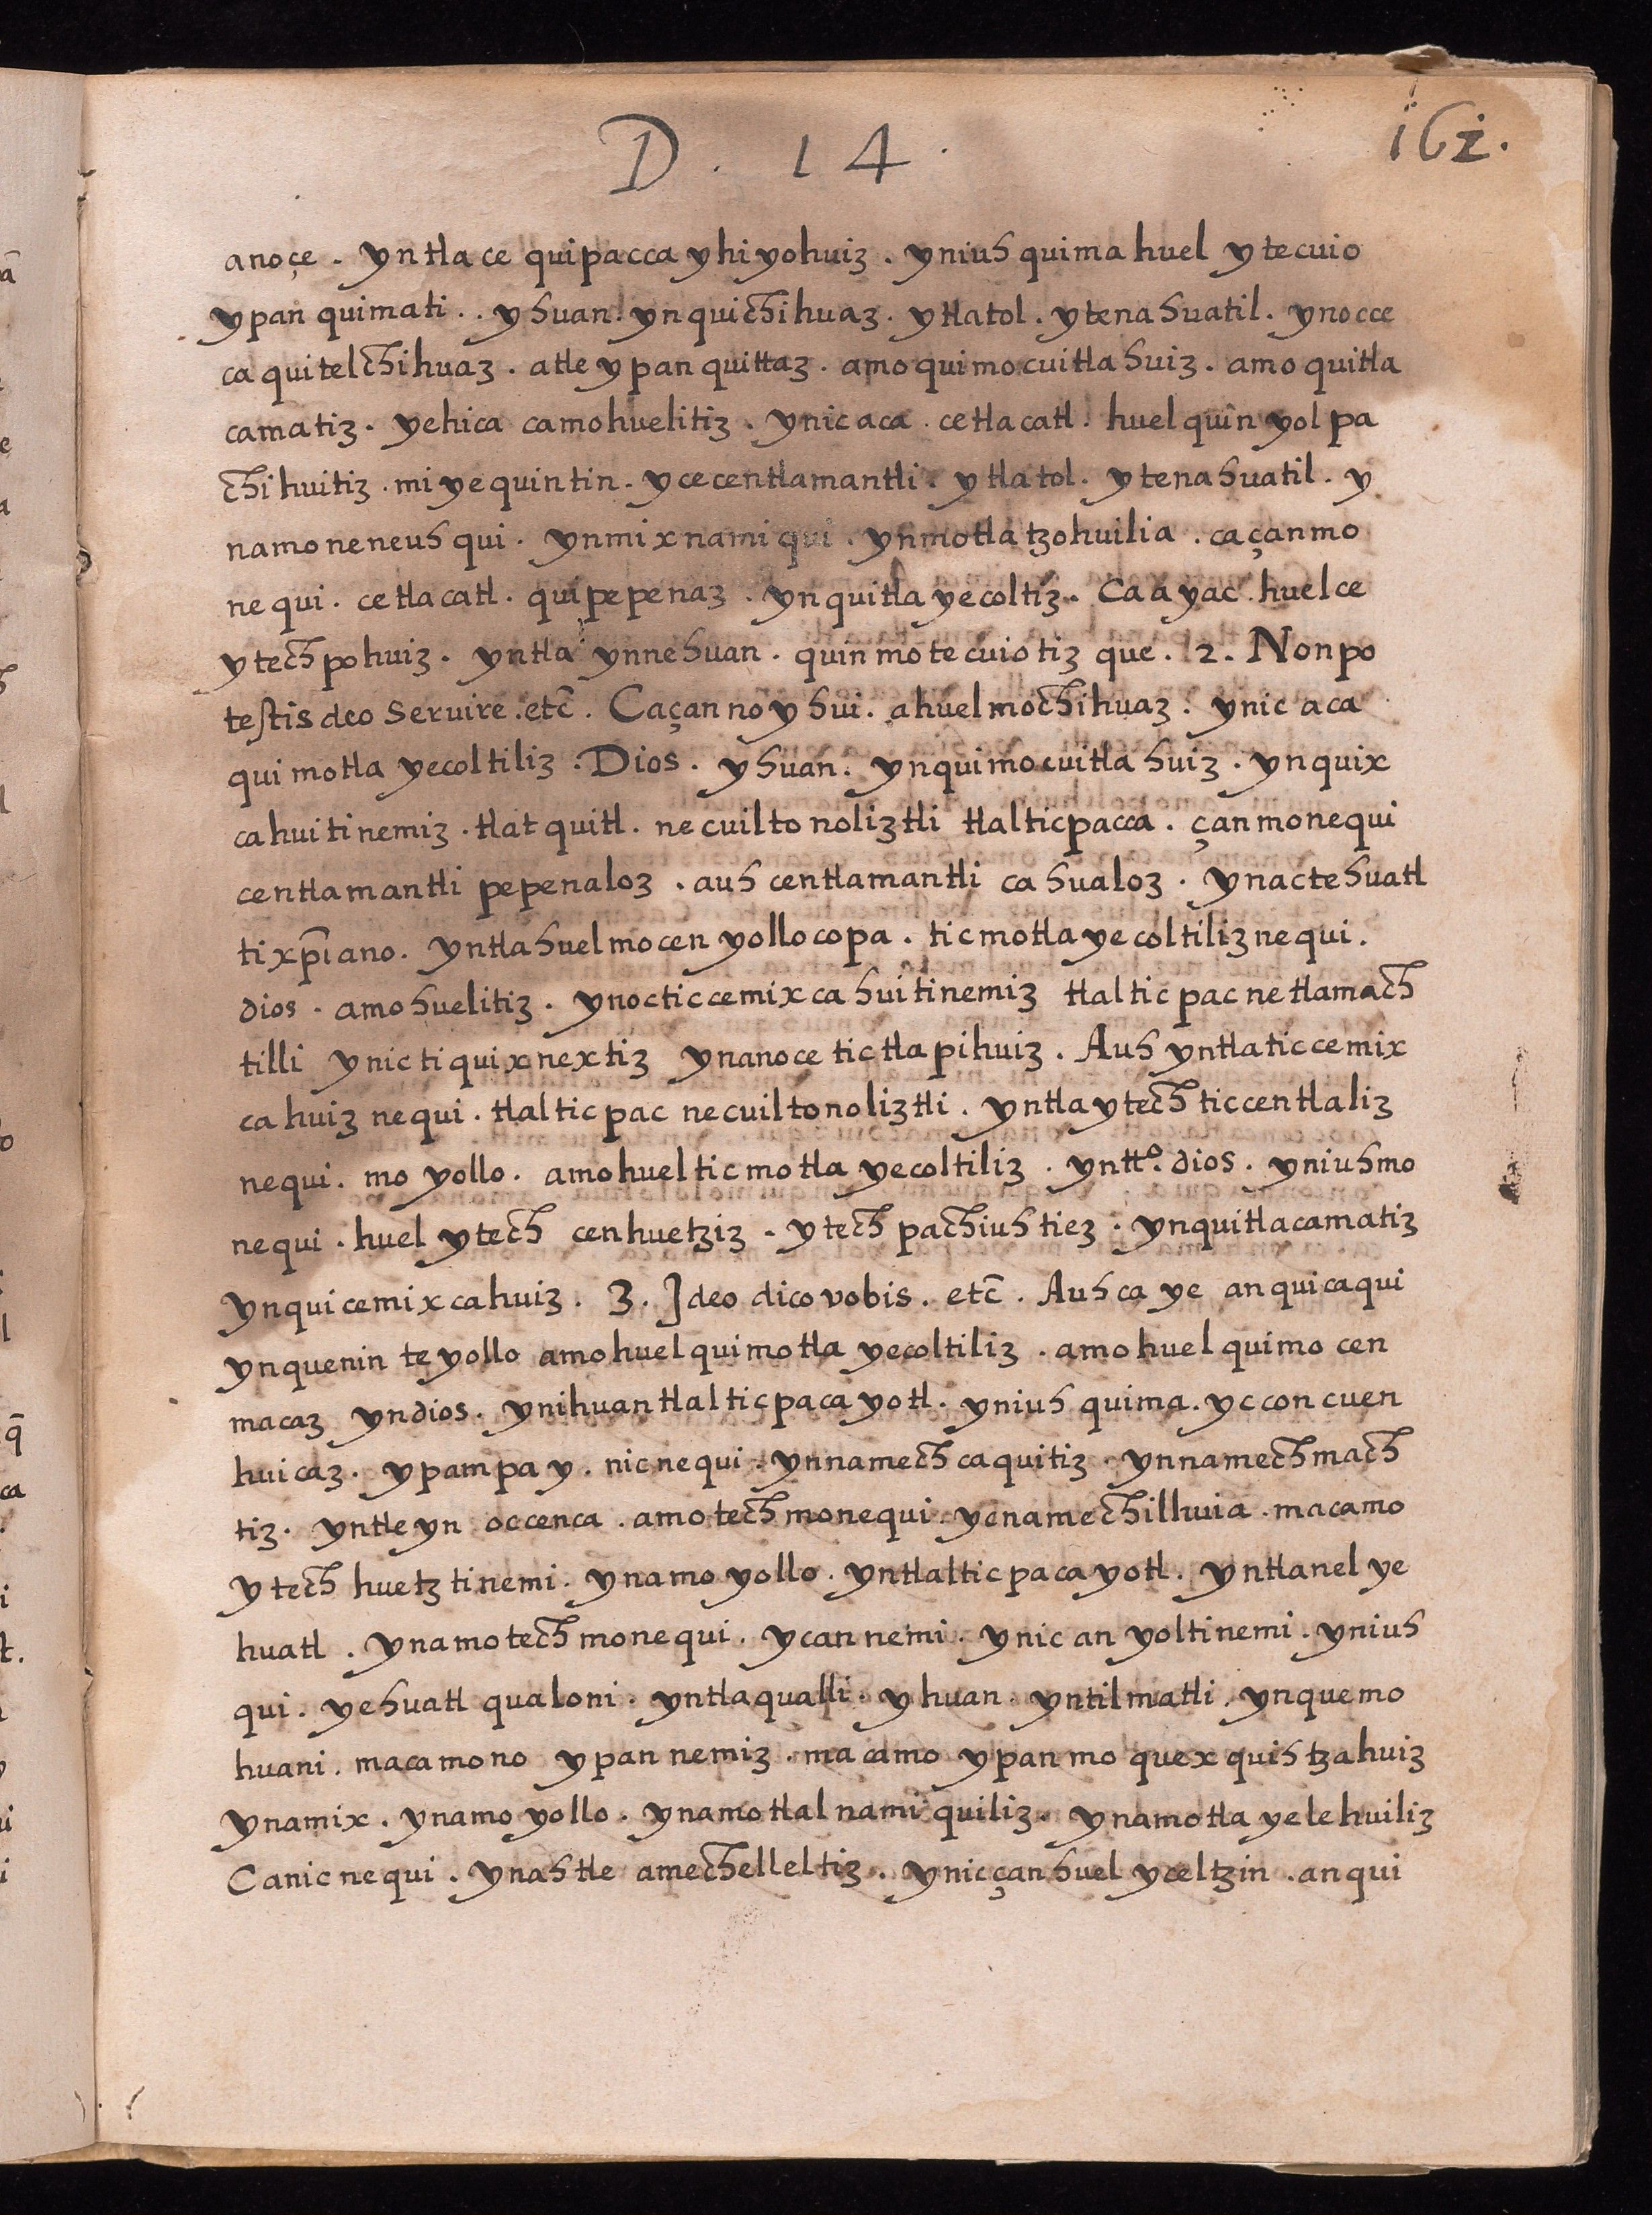 D. 14.
162.
anoçe. yntlace quipacca yhiyohuiz. yniuh quima huel ytecuio
ypan quimati.. yhuan. ynquichihuaz. ytlatol. ytenahuatil. ynocce
ca quitelchihuaz. atle ypan quittaz. amo quimocuitlahuiz. amo quitla
camatiz. yehica camohuelitiz. ynic aca. cetlacatl. huel quin yolpa
chihuitiz. miyequintin. ycecentlamantli. ytlatol. ytenahuatil. y
namoneneuhqui. ynmixnamiqui. ynmotlatzohuilia. caçanmo
nequi. cetlacatl. quipepenaz. ynquitlayecoltiz. Ca ayac. huelce
ytechpohuiz. yntla ynnehuan. quinmotecuiotiz que. 2. Nonpo
testis deo Seruire. etc̄. Caçan no yhui. ahuelmochihuaz. ynic aca
quimotlayecoltiliz. Dios. yhuan. ynquimocuitlahuiz. ynquix
cahuitinemiz. tlatquitl. necuiltonoliztli tlalticpacca. çanmonequi
centlamantli pepenaloz. auh centlamantli cahualoz. ynactehuatl
tixp̄iano. yntlahuelmocenyollocopa. ticmotlayecoltiliznequi.
dios. amohuelitiz. ynocticcemixcahuitinemiz tlalticpac netlamach
tilli ynic tiquixnextiz ynanoce tictlapihuiz. Auh yntlaticcemix
cahuiz nequi. tlalticpac necuiltonoliztli. yntla ytech ticcentlaliz
nequi. mo yollo. amohuel ticmotlayecoltiliz. yntt⁰. dios. yniuhmo
nequi. huel ytech cenhuetziz. ytech pachiuhtiez. ynquitlacamatiz
ynquicemixcahuiz. 3. Ideo dico vobis. etc̄. Auh ca ye anquicaqui
ynquenin teyollo amohuel quimotlayecoltiliz. amohuel quimocen
macaz yndios. ynihuan tlalticpacayotl. yniuh quima. yc concuen
huicaz. ypampa y. nicnequi. ynnamechcaquitiz. ynnamechmach
tiz. yntleyn occenca. amotechmonequi. yenamechilhuia. macamo
ytech huetztinemi. ynamoyollo. yntlalticpacayotl. yntlanel ye
huatl. ynamotechmonequi. ycannemi. ynic anyoltinemi. yniuh
qui. yehuatl qualoni. yntlaqualli. yhuan. yntilmatli. ynquemo
huani. macamono ypan nemiz. macamo ypan moquexquihtzahuiz
ynamix. ynamoyollo. ynamotlalnamiquiliz. ynamotlayelehuiliz
Canicnequi. ynahtle amechelleltiz. ynicçanhuel yceltzin. anqui